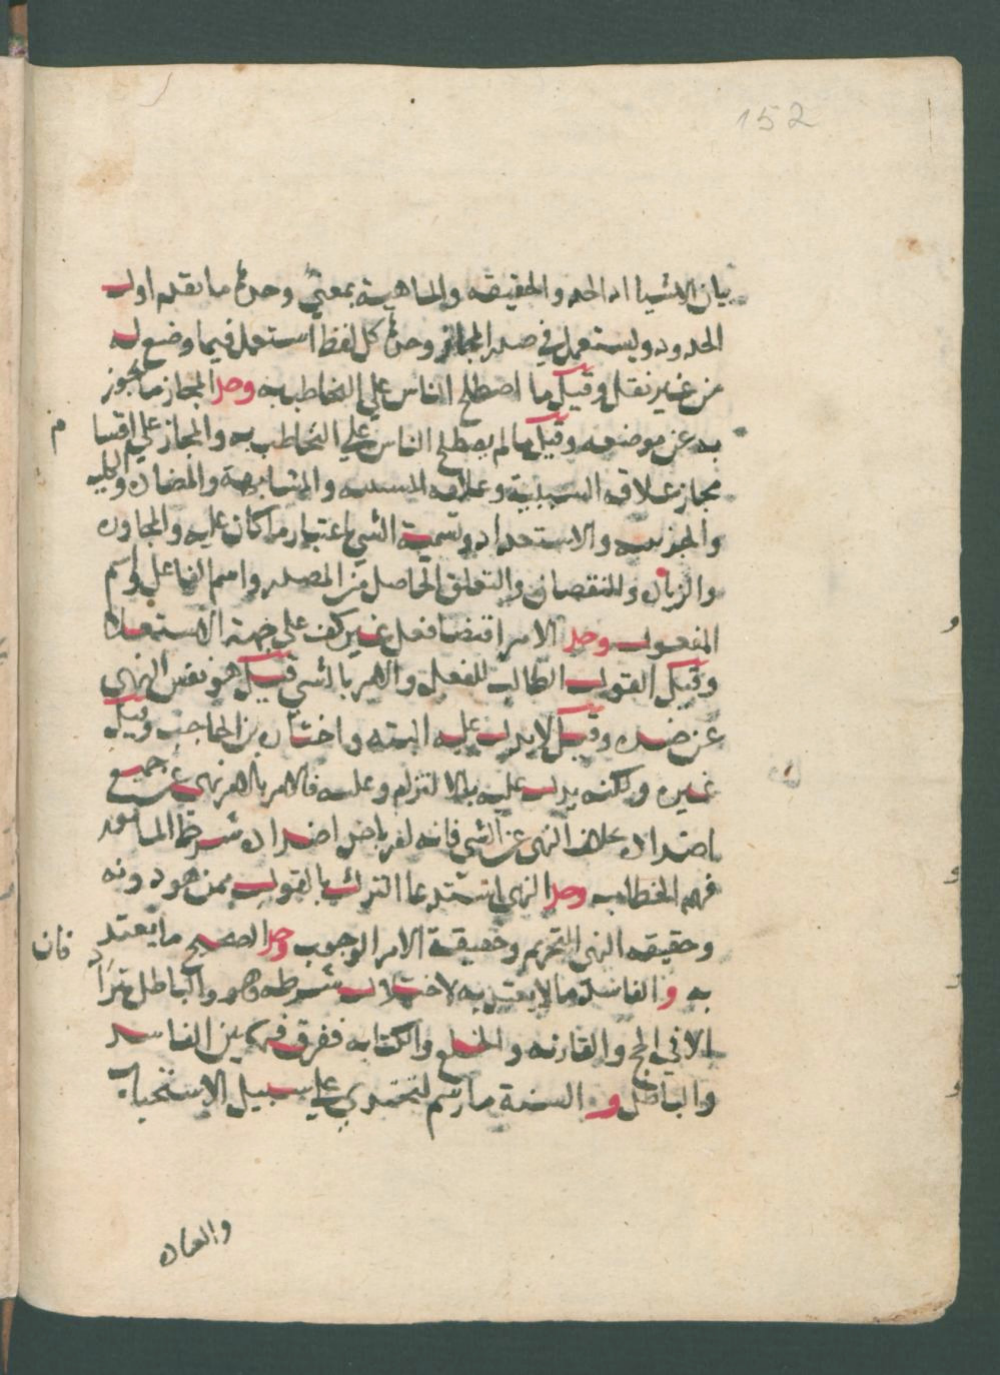 152
بيان الاشيا اذ الحد والحقيقه والماهية بمعنى وحده ما تقدم اول
الحدود ويستعمل في صدر المجاز وحده كل لفظ استعمل فيما وضع له
من غير نقل وقيل ما اصطلح الناس على التخاطب به وحد المجاز ما تجوز
به عن موضعه وقيل ما لم يصطلح الناس على التخاطب به والمجاز على اقسام
مجاز علاقه السببية وعلاقه المسببيه والمشابهة والمضاده والكليه
والجزئيه والاستعداد وتسمية الشي باعتبار ما كان عليه والمجاوره
والزياده والنقصان والتعلق الحاصل من المصدر واسم الفاعل واسم
المفعول وحد الامر اقتضا فعل غير كف على جهة الاستعلا
وقيل القول الطالب للفعل والامر بالشي قيل هو نفس النهي
عن ضده وقيل لا يدل عليه البته واختاره بن الحاجب وقيل
غيره ولكنه يدل عليه بالالتزام وعليه فالامر بالامر نهي عن جميع
اضداده بخلاف النهي عن الشي فانه امر باحد اضداده شرط المامور
فهم الخطاب وحد النهي استدعا الترك بالقول ممن هو دونه
وحقيقه النهي التحريم وحقيقة الامر الوجوب وحد الصحيح ما يعتد
به والفاسد ما لا يعتد به لاختلال شرطه وهو والباطل
فان
الا في الحج والعارية والخلع والكتابه ففرق فيها بين الفاسد
والباطل و السنة ما رسم لتحتذي على سبيل الاستحباب
والعاده